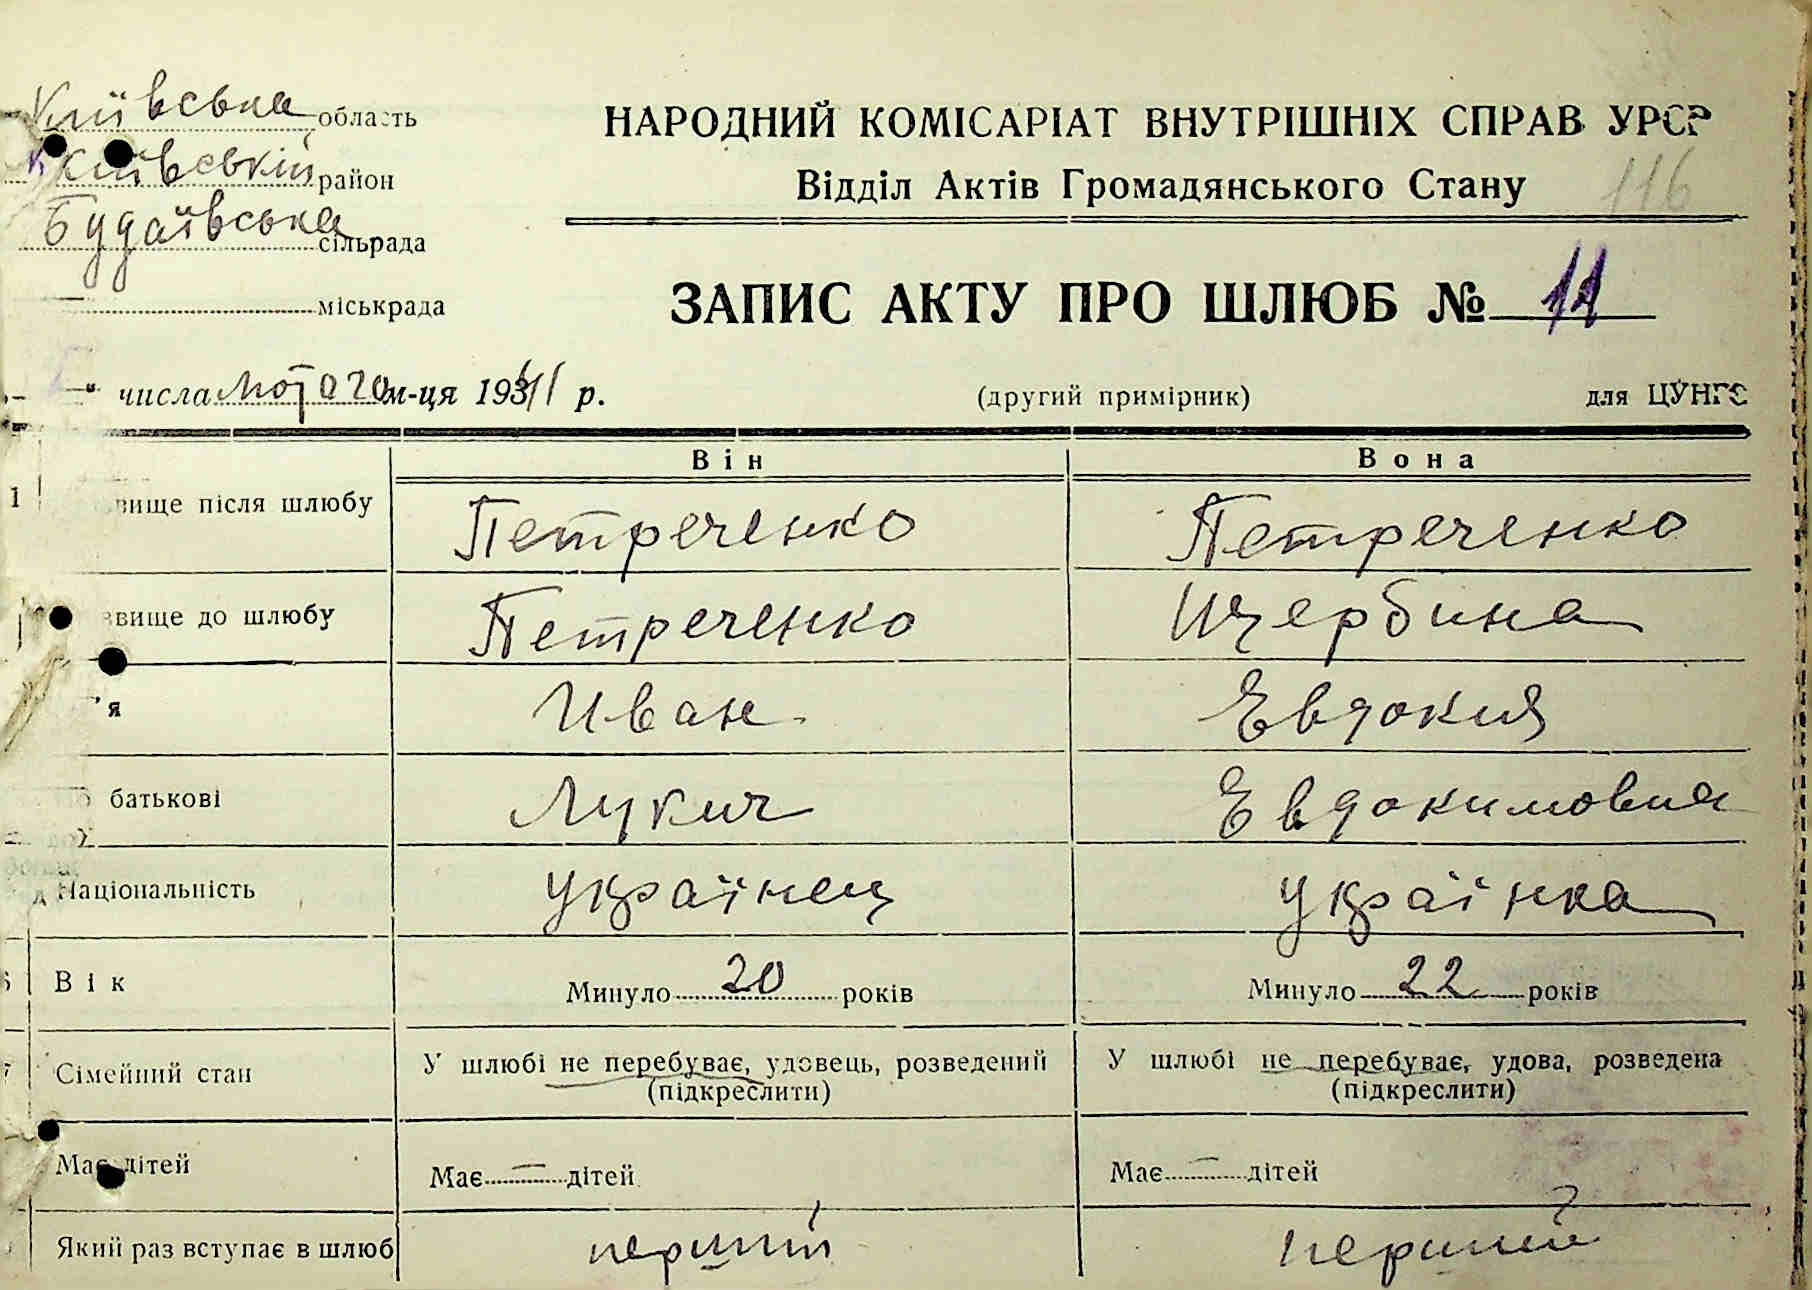 Київська область
НАРОДНИЙ КОМІСАРІАТ ВНУТРІШНІХ СПРАВ УРСР
Київський район
Відділ Актів Громадянського Стану 116
Будаївська сільрада
міськрада
ЗАПИС АКТУ ПРО ШЛЮБ № 11
" числа лютого м-ця 1941 р.
(другий примірник)
для ЦУНГО
Він Вона
1 вище після шлюбу Петреченко Петреченко
звище до шлюбу Петреченко Щербина
'я Иван Евдокия
батькові Лукич Евдокимовна
Національність українец українка
Вік Минуло 20 років Минуло 22 років
Сімейний стан У шлюбі не перебуває, удовець, розведений У шлюбі не перебуває, удова, розведена
(підкреслити) (підкреслити)
Має дітей Має — дітей Має — дітей
Який раз вступає в шлюб перший перший